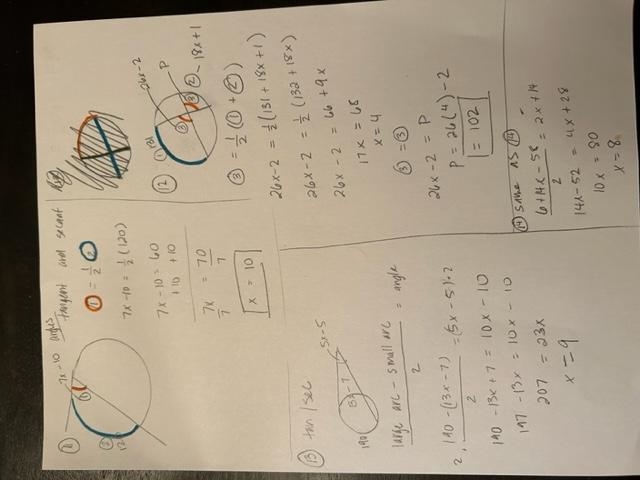 ⑪ angles tangent and secant
7x-10
①
②
120
① = 1/2 ②
7x-10 = 1/2 (120)
7x-10 = 60
+10 +10
7x/7 = 70/7
x = 10
⑫
26x-2
P
① 131
③
③
② - 18x+1
③ = 1/2 (① + ②)
26x-2 = 1/2 (131 + 18x+1)
26x-2 = 1/2 (132 + 18x)
26x-2 = 66 + 9x
17x = 68
x = 4
③ = ③
26x-2 = P
P = 26(4) - 2
= 102
⑬ tan/sec
190
13x-7
5x-5
large arc - small arc / 2 = angle
2. 190-(13x-7) / 2 = (5x-5)·2
190-13x+7 = 10x-10
197-13x = 10x-10
207 = 23x
x = 9
⑭ same as
6+14x-58 / 2 = 2x+14
14x-52 = 4x+28
10x = 80
x = 8